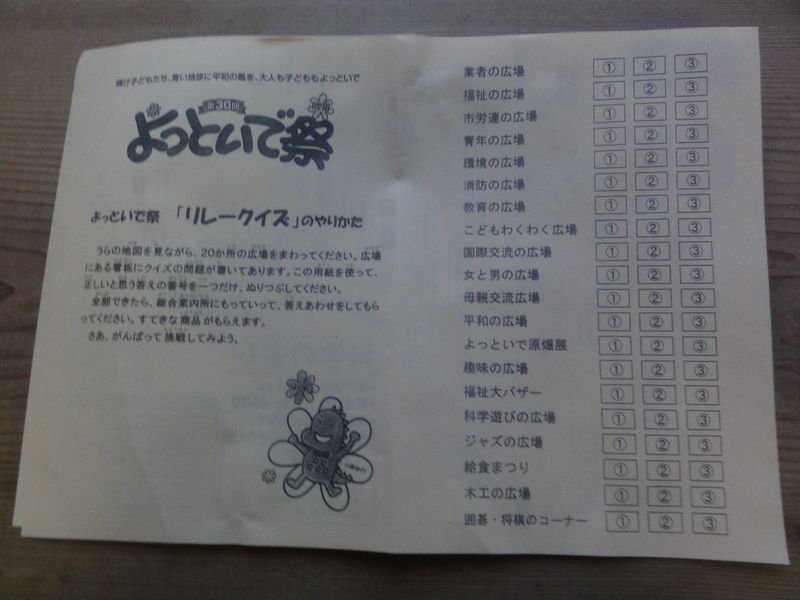 輝け子どもたち、青い地球に平和の風を、大人も子どももよっといで
第30回
よっといで祭
よっといで祭 「リレークイズ」のやりかた
うらの地図を見ながら、20か所の広場をまわってください。広場
にある看板にクイズの問題が書いてあります。この用紙を使って、
正しいと思う答えの番号を一つだけ、ぬりつぶしてください。
全部できたら、総合案内所にもっていって、答えあわせをしてもら
ってください。すてきな商品がもらえます。
さあ、がんばって挑戦してみよう。
業者の広場 ① ② ③
福祉の広場 ① ② ③
市労連の広場 ① ② ③
青年の広場 ① ② ③
環境の広場 ① ② ③
消防の広場 ① ② ③
教育の広場 ① ② ③
こどもわくわく広場 ① ② ③
国際交流の広場 ① ② ③
女と男の広場 ① ② ③
母親交流広場 ① ② ③
平和の広場 ① ② ③
よっといで原爆展 ① ② ③
趣味の広場 ① ② ③
福祉大バザー ① ② ③
科学遊びの広場 ① ② ③
ジャズの広場 ① ② ③
給食まつり ① ② ③
木工の広場 ① ② ③
囲碁・将棋のコーナー ① ② ③